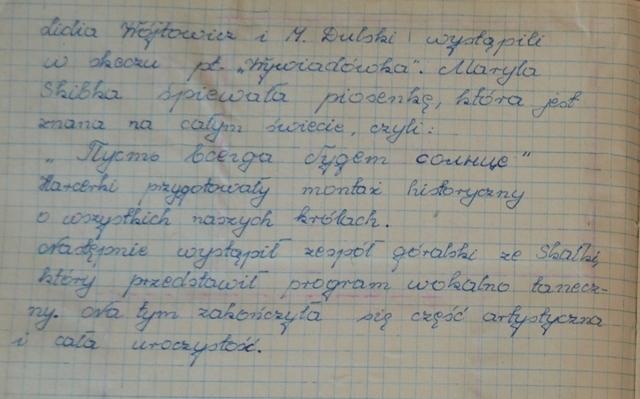 Lidia Wójtowicz i M. Dulski wystąpili
w skeczu pt. „Wywiadówka". Maryla
Skibka śpiewała piosenkę, która jest
znana na całym świecie, czyli:
„Пусть всегда будет солнце"
Harcerki przygotowały montaż historyczny
o wszystkich naszych królach.
Następnie wystąpił zespół góralski ze Skałki,
który przedstawił program wokalno tanecz-
ny. Na tym zakończyła się część artystyczna
i cała uroczystość.